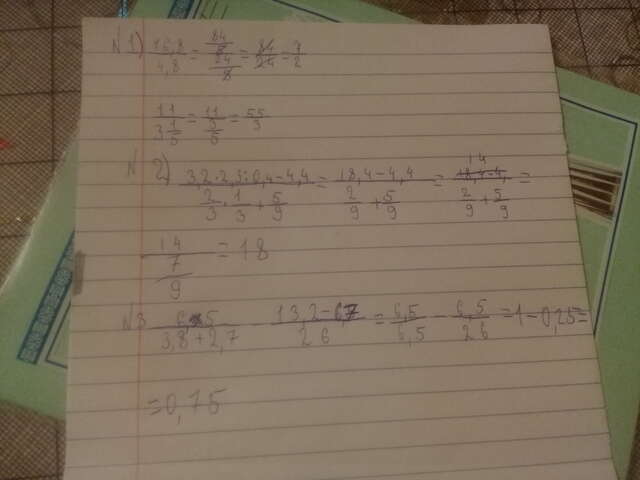 N 1) 16,8/4,8 = 84/5 / 24/5 = 84/24 = 7/2
11 / 3 1/5 = 11 / 3/5 = 55/3
N 2) 3,2·2,3:0,4-4,4 / 2/3·1/3+5/9 = 18,4-4,4 / 2/9+5/9 = 14 / 2/9+5/9 =
14 / 7/9 = 18
N3 6,5 / 3,8+2,7 - 13,2-6,7 / 26 = 6,5/6,5 - 6,5/26 = 1-0,25=
=0,75